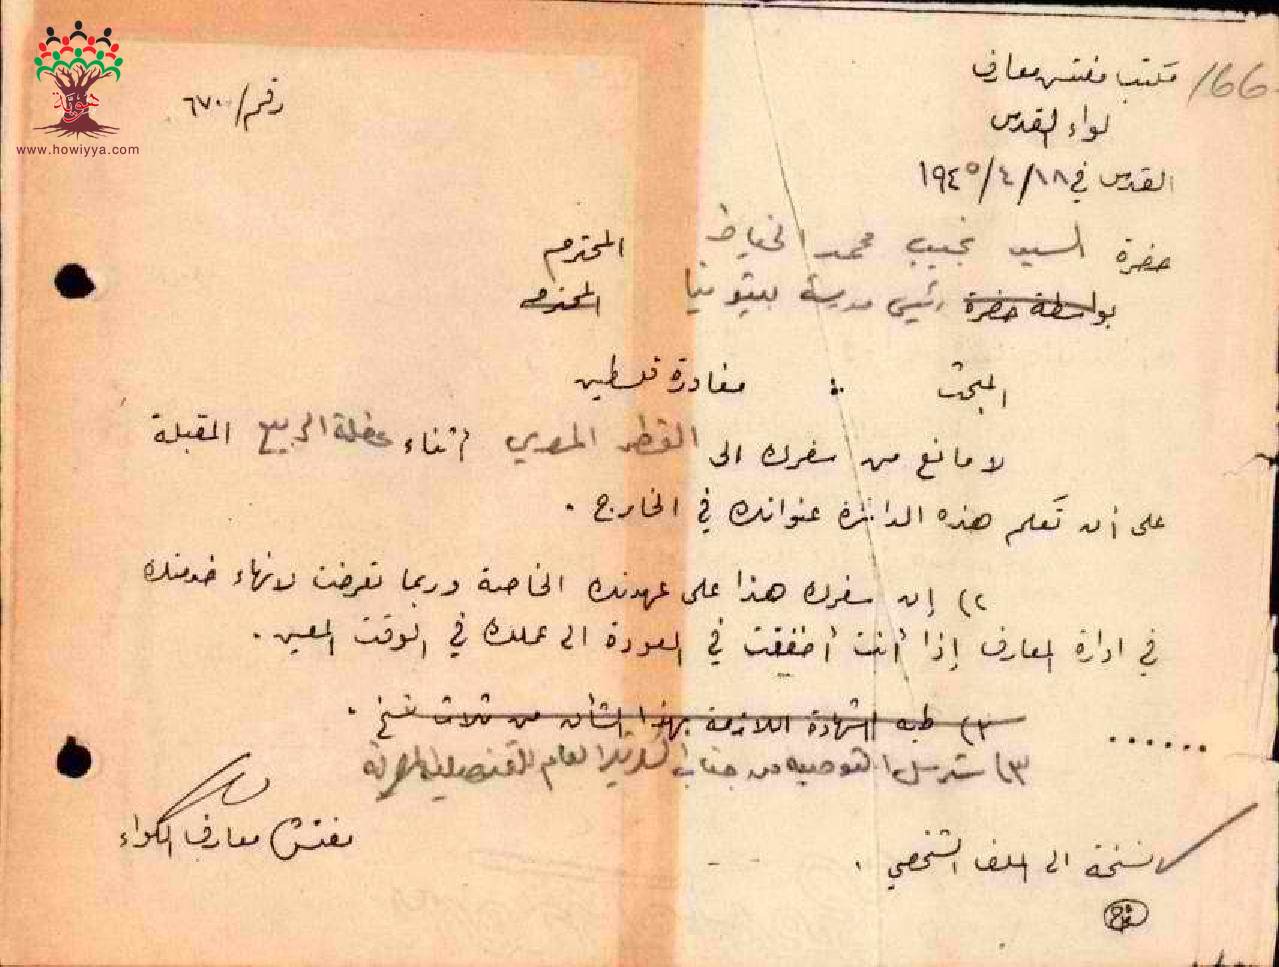 هوية
www.howiyya.com
166
مكتب مفتش معارف
لواء القدس
رقم/ ٦٧٠
القدس في ١٨/٤/١٩٤٥
حضرة السيد نجيب محمد الخياط المحترم
بواسطة حضرة رئيس مدرسة بيتونيا المحترم
المبحث : مغادرة فلسطين
لا مانع من سفرك الى القطر المصري أثناء عطلة الربيع المقبلة
على أن تعلم هذه الدائرة عنوانك في الخارج .
٢) إن سفرك هذا على عهدتك الخاصة وربما تعرضت لانهاء خدمتك
في ادارة المعارف إذا أنت أخفقت في العودة الى عملك في الوقت المعين .
٣) طيه الشهادة اللازمة بهذا الشأن من ثلاث نسخ .
......
٣) سترسل التوصية من جناب المدير العام للقنصلية المصرية
مفتش معارف اللواء
نسخة الى الملف الشخصي .